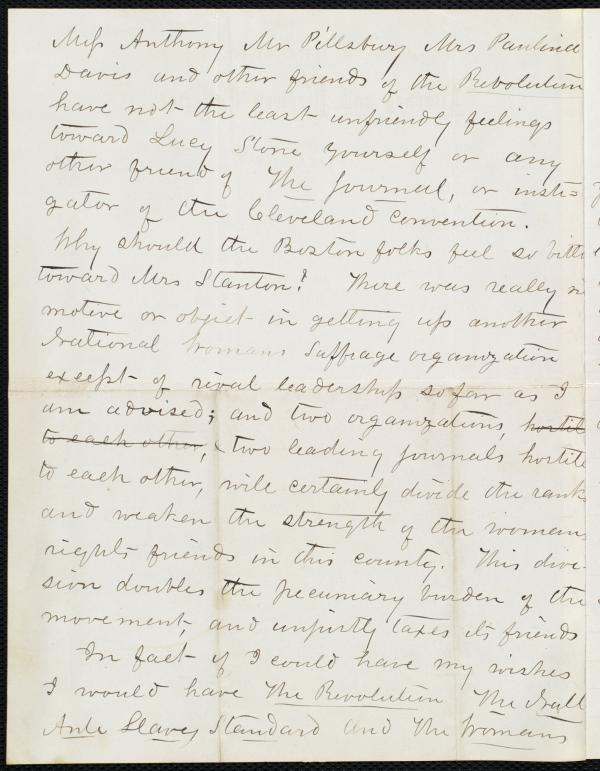 Miss Anthony Mr Pillsbury Mrs Paulina
Davis and other friends of the Revolution
have not the least unfriendly feelings
toward Lucy Stone yourself or any
other friend of The Journal, or insti=
gator of the Cleveland convention.
Why should the Boston folks feel so bitte
toward Mrs Stanton? There was really n
motive or object in getting up another
National Womans Suffrage organization
except of rival leadership so far as I
am advised; and two organizations, hostil
to each other, & two leading journals hostile
to each other, will certainly divide the ranks
and weaken the strength of the womans
rights friends in this county. This divi-
sion doubles the pecuniary burden of the
movement, and unjustly taxes its friends
In fact if I could have my wishes
I would have The Revolution The Natl
Ante Slavey Standard and The Womans